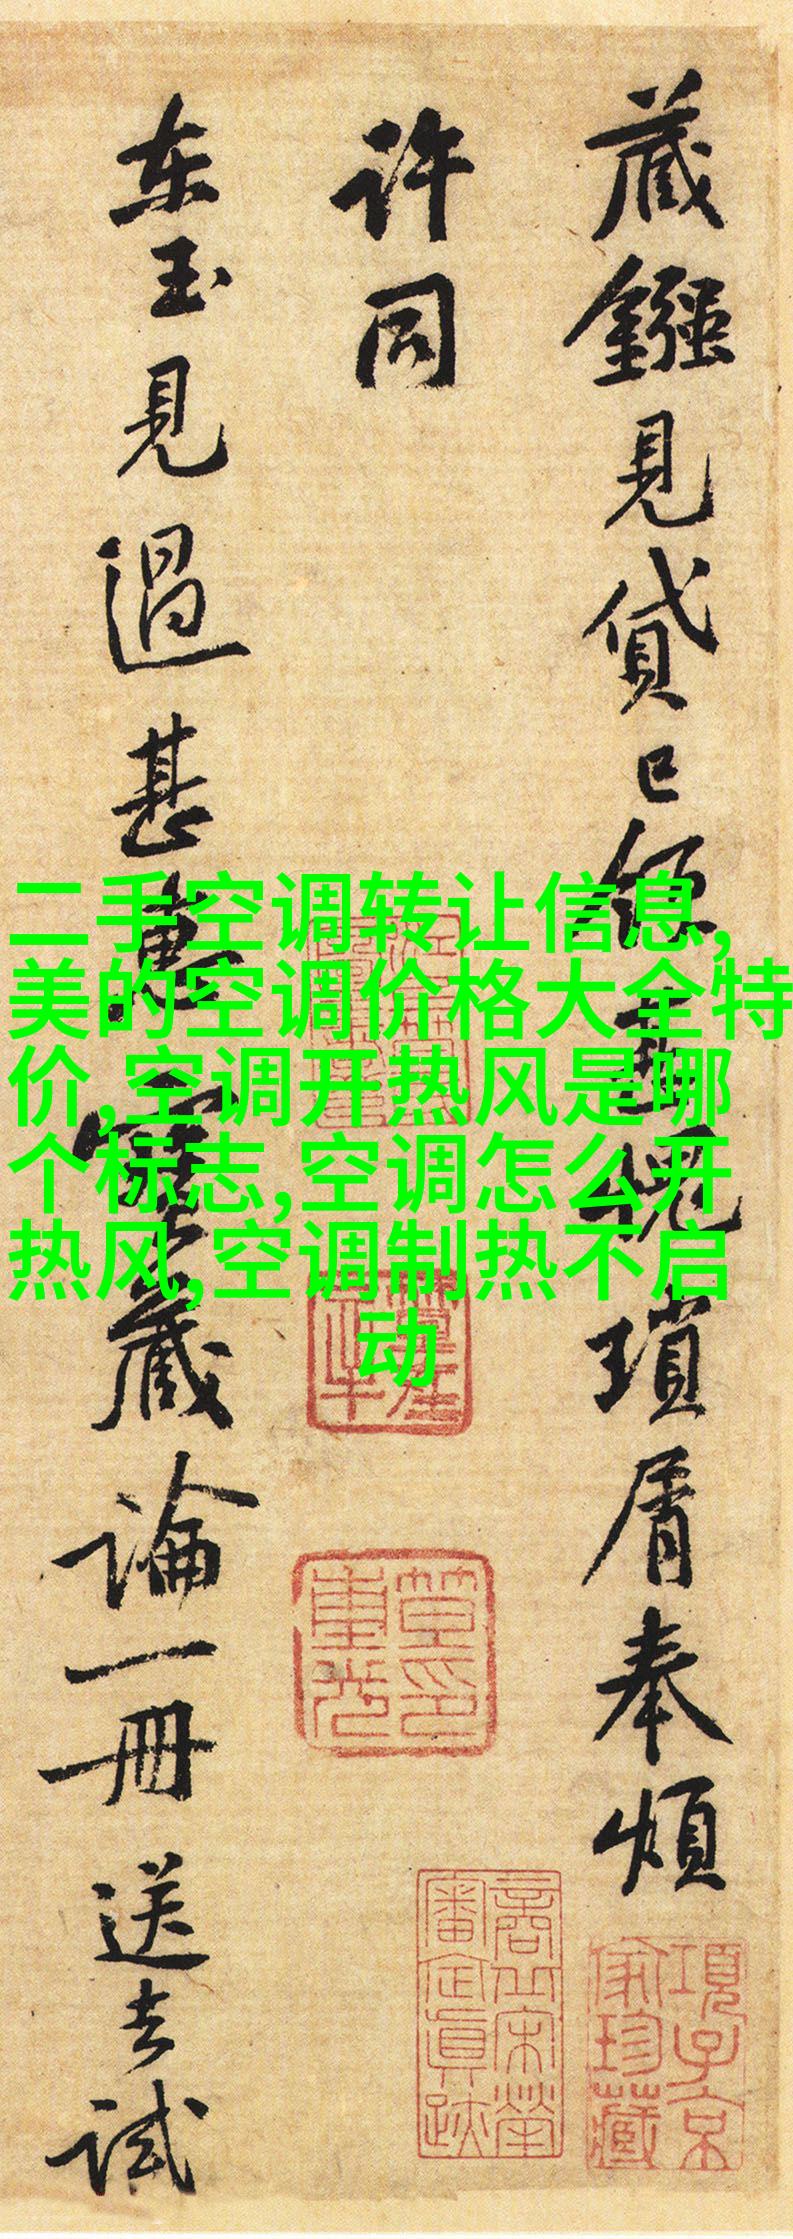 藏鏹見貸已領
瑣屑奉煩
许同
东玉見過甚惠
寳藏論一冊送去試
項子京
家珍藏
二手空调转让信息,
美的空调价格大全特
价,空调开热风是哪
个标志,空调怎么开
热风,空调制热不启
动